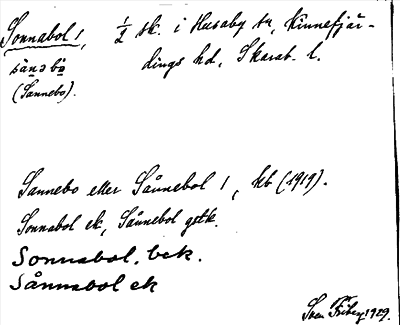 Sonnabol 1, 1/2 sk. i Husaby sn, Kinnefjär-
sànəbò dings hd, Skarab. l.
(Sannebo).
Sannebo eller Sånnebol 1, kb (1919).
Sonnabol ek, Sånnebol gstk.
Sonnabol. bek.
Sånnabol ek
Sven Friberg 1929.